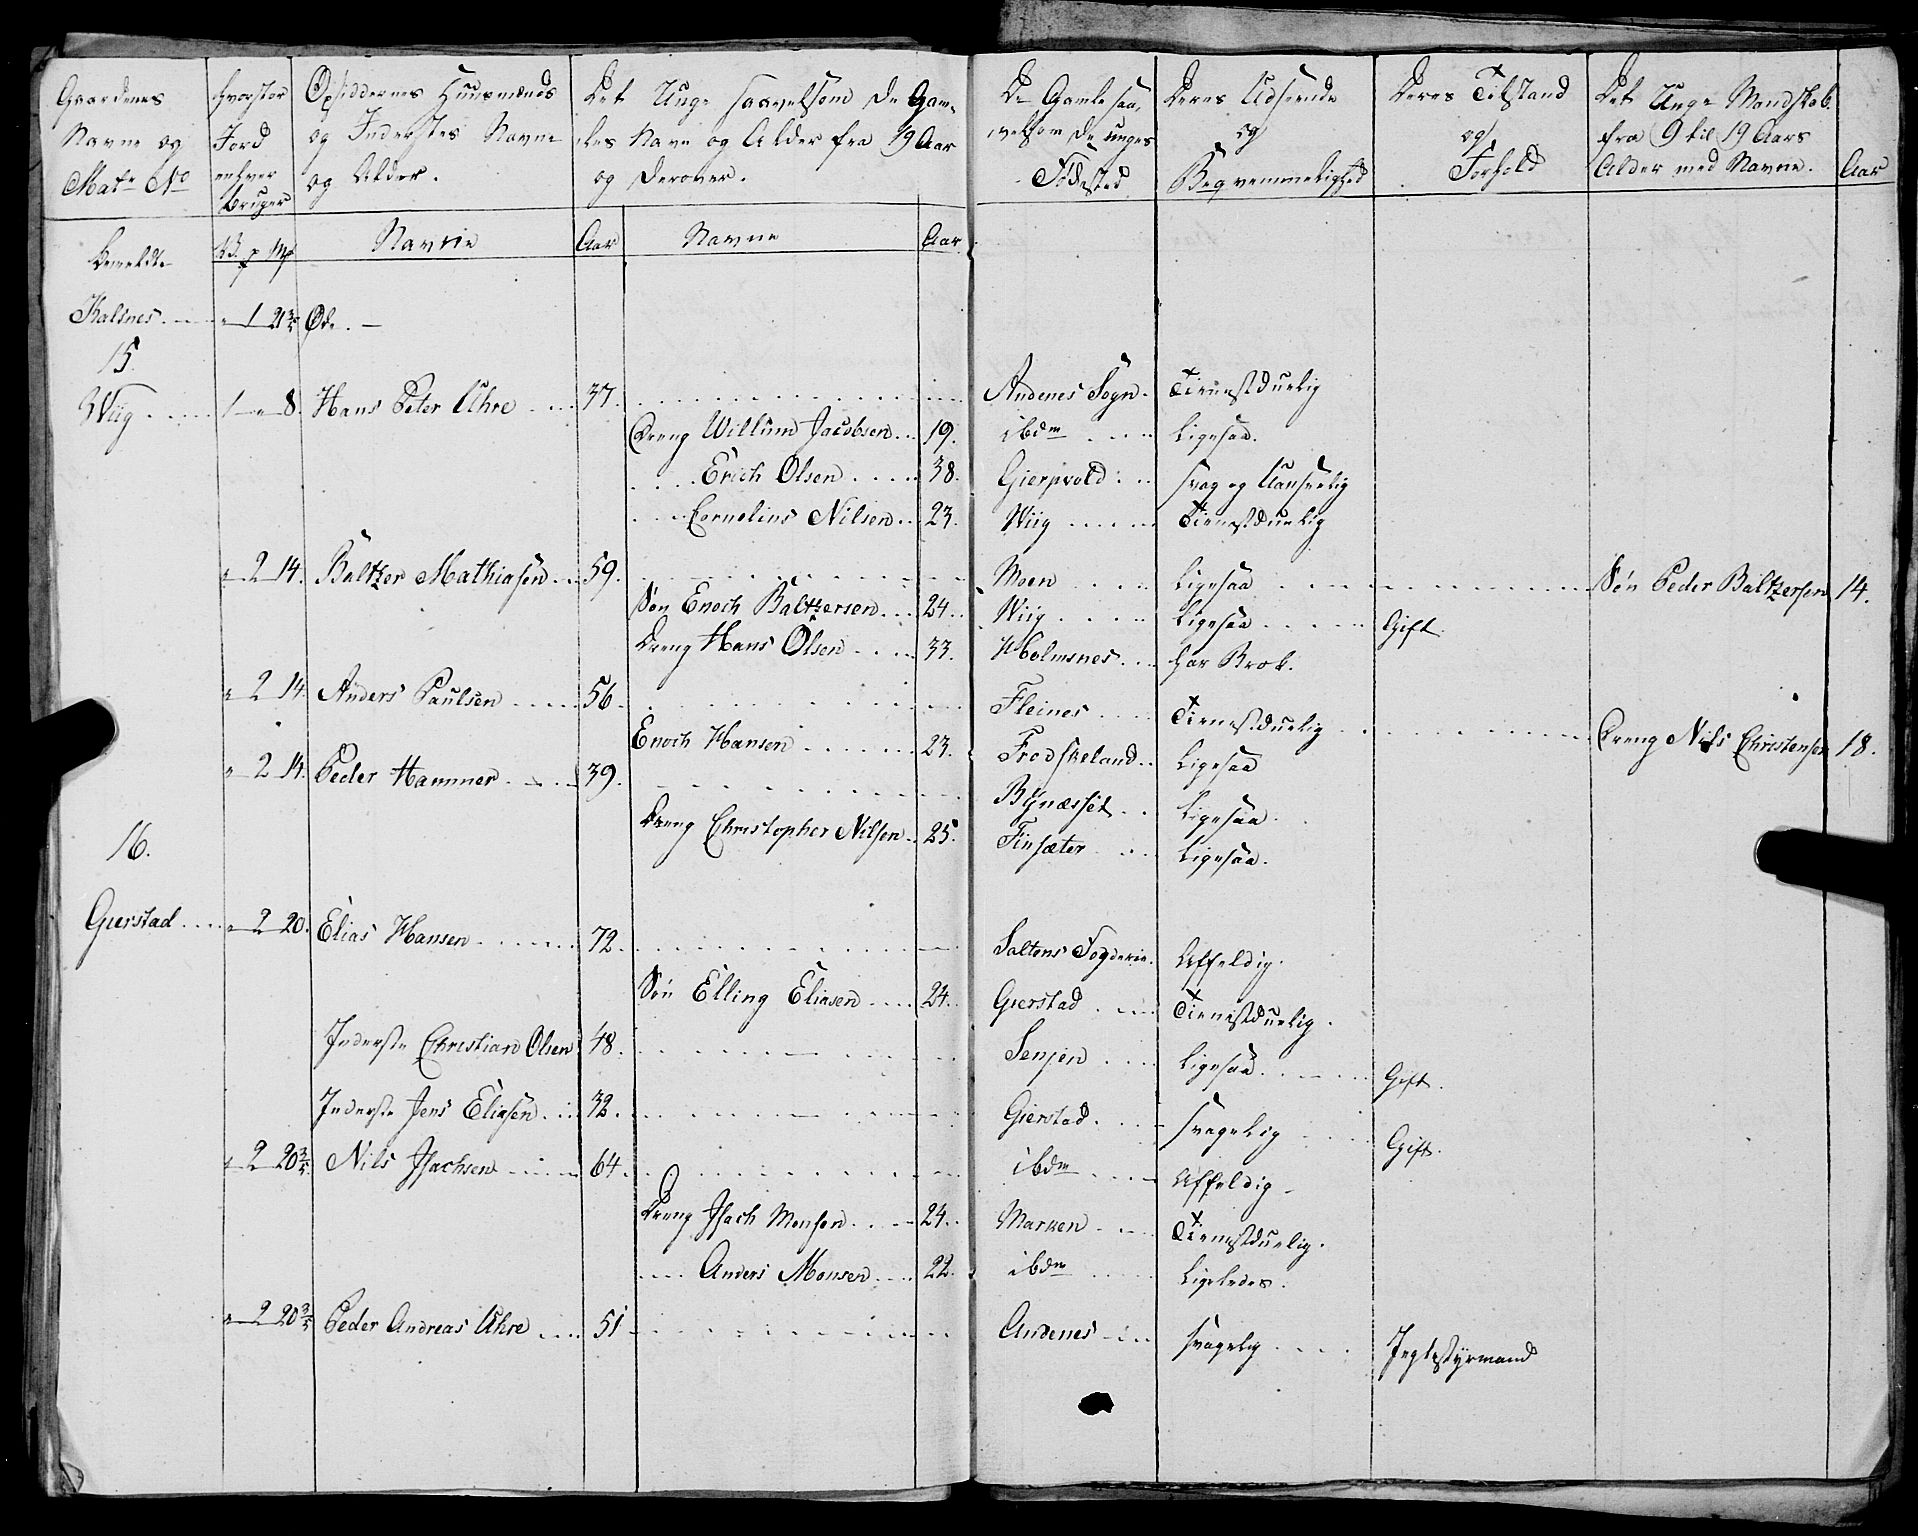 Gaardenes Navne og Matr No | hvorstor Jord enhver bruger | Opsiddernes Huusmænds og Inderstes Navne og Alder. | Det Unge saavelsom de Gamles Navn og Alder fra 19 Aar og derover. | De Gamle saavelsom de unges Fødested | Deres Udseende og Beqvemmelighed | Deres Tilstand og Forhold | Det Unge Mandskab fra 9 til 19 Aars Alder med Navne. | Aar
Bemeldte | V. p Mk | Navne | Aar | Navne | Aar
Kalsnes. | " 1 21 3/5 | Øde. —
15.
Wiig | 1 " 8. | Hans Peter Uhre | 37. | Andenes Sogn. | Tienestduelig
Dreng Willum Jacobsen | 19. | ibdm | Ligesaa.
Erich Olsen | 38. | svag og Uanseelig
Cornelius Nilsen | 23. | Wiig | Tienestduelig
" 2 14. | Baltzer Mathiasen | 59. | Moen | Ligesaa | Søn Peder Baltzersen | 14.
Søn Enoch Baltzersen | 24. | Wiig | Ligesaa | Gift.
Dreng Hans Olsen | 33. | Holmsnes | har Brok.
" 2 14. | Anders Paulsen | 56. | Fleines | Tienestduelig | Dreng Nils Christensen | 18.
Enoch Hansen | 23. | Frodskeland | Ligesaa
" 2 14. | Peder Hammer | 39. | Bynæsset | Ligesaa.
Dreng Christopher Nilsen | 25. | Finsæter | Ligesaa.
16.
Gierstad | " 2 20. | Elias Hansen | 72. | Saltens Fogderie. | Affeldig.
Søn Elling Eliasen | 24. | Gierstad | Tienistduelig.
Inderste Christian Olsen | 48. | Senjen | Ligesaa | Gift.
Inderste Jens Eliasen | 32. | Gierstad. | svagelig | Gift.
" 2 20 3/5 | Nils Isachsen | 64. | ibdm | Affeldig
Dreng Isach Monsen | 24. | Marken | Tienestduelig.
Anders Monsen | 22. | ibdm | Ligeledes.
" 2 20 3/5 | Peder Andreas Uhre | 51 | Andenes | svagelig | Jegtestyrmand